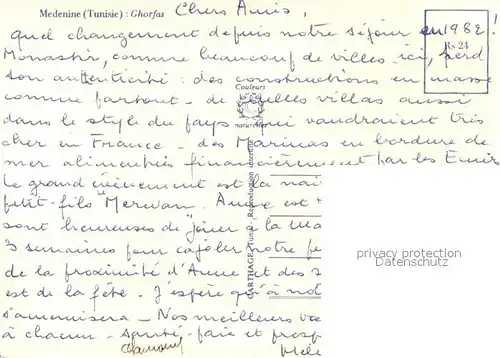 Medenine (Tunisie) : Ghorfas
Chers Amis,
quel changement depuis notre séjour en 1982 !
Rs 24
Monastir, comme beaucoup de villes ici, perd
son authenticité : des constructions en masse
comme partout - de belles villas aussi
dans le style du pays qui vaudraient très
cher en France - des Marinas en bordure de
mer alimentées financièrement par les Emirs
Le grand événement est la nai
petit-fils "Merwan". Anne est
sont heureuses de "jouer à la Ma
3 semaines pour cajoler notre pe
de la proximité d'Anne et des
est de la fête. J'espère qu'à not
s'amenuisera - Nos meilleurs v
à chacun - santé - paix et prosp
Couleurs
naturelles
CARTHAGE, Tunis - Reproduction interdite
privacy protection
Datenschutz